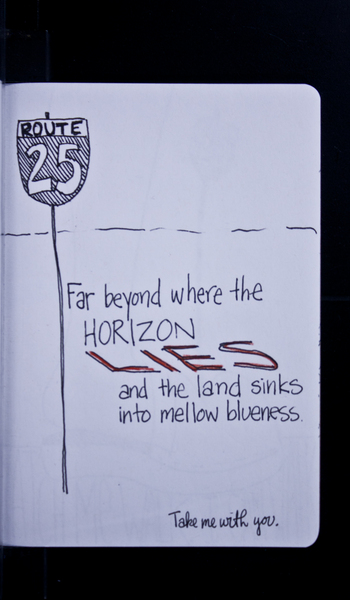 ROUTE
25
Far beyond where the
HORIZON
LIES
and the land sinks
into mellow blueness.
Take me with you.